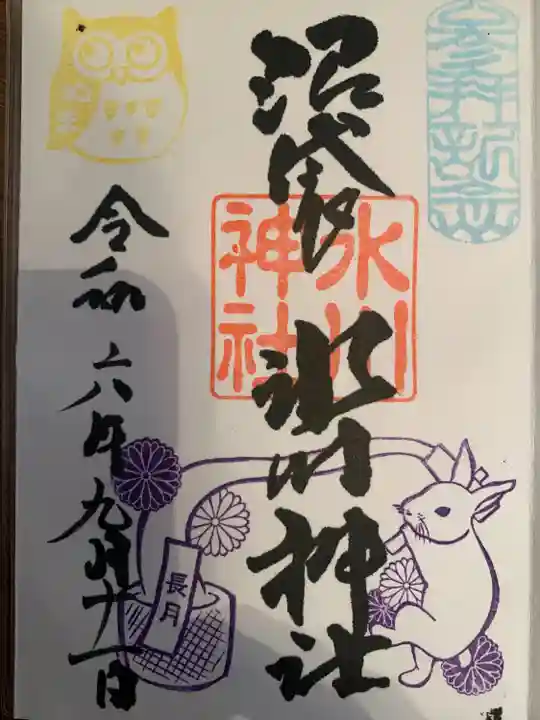 参拝記念
沼袋 氷川神社
氷川
神社
令和六年九月十一日
長月